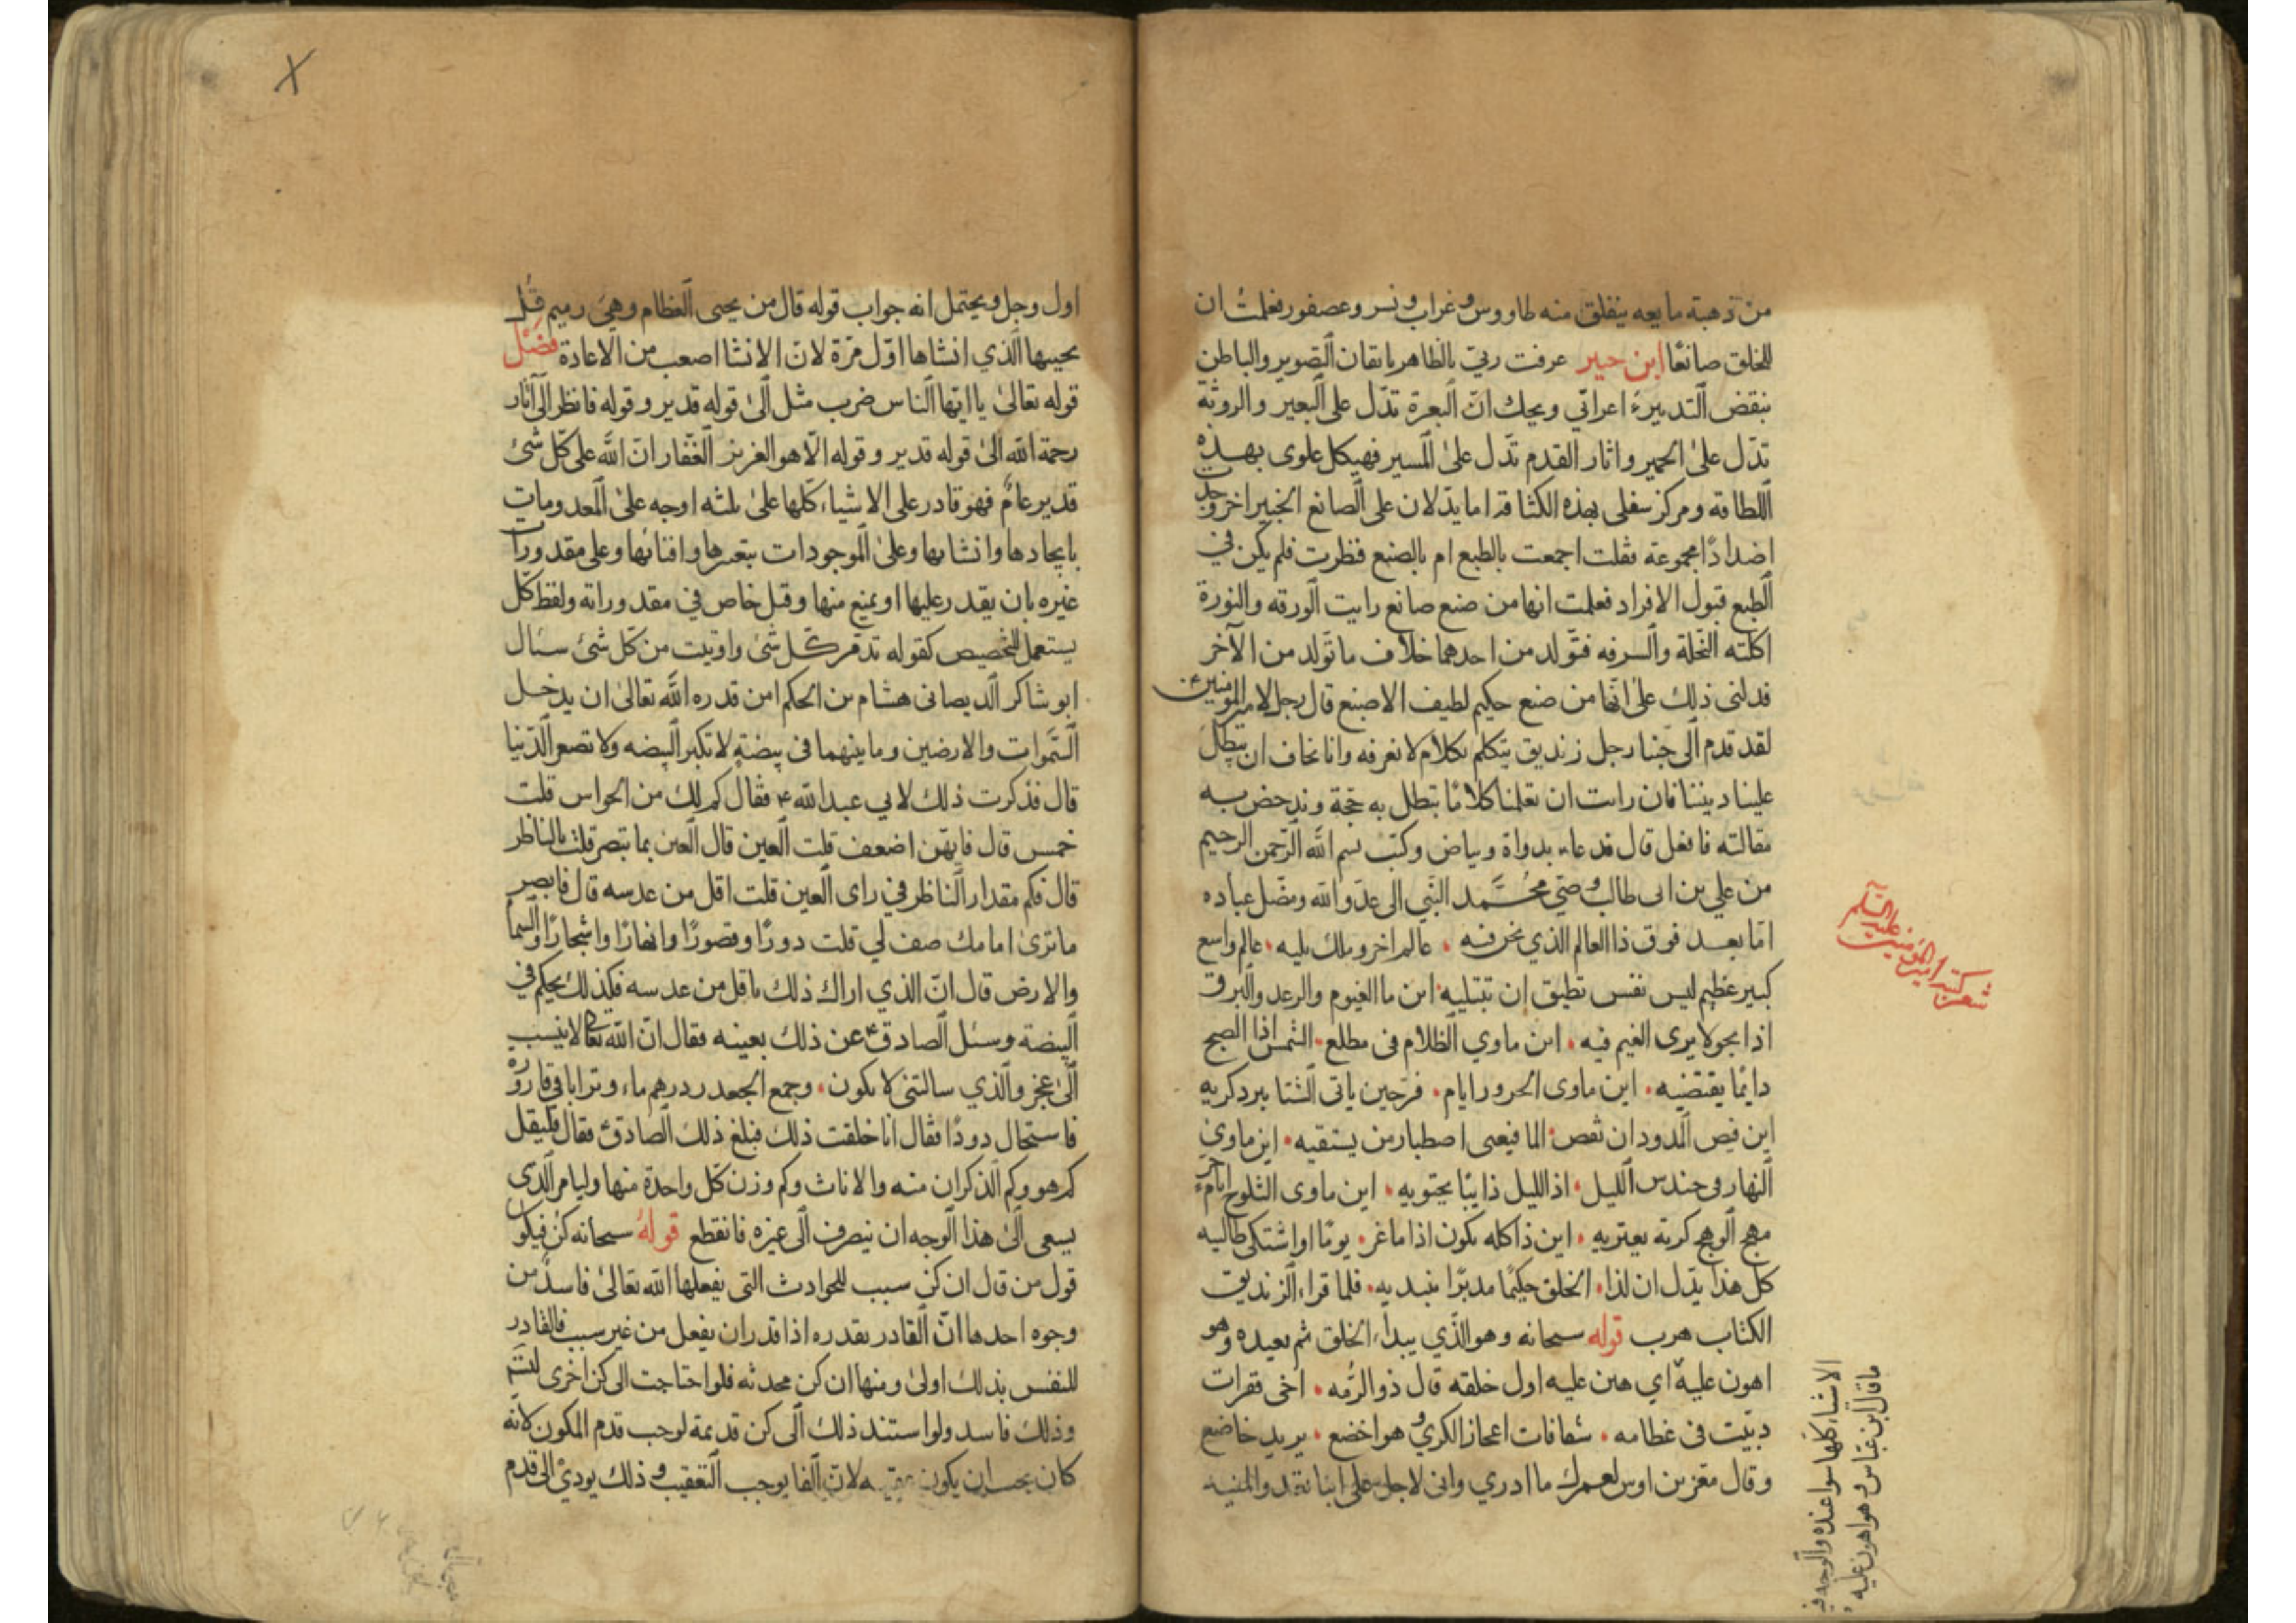 من ذهبة مايعه ينفلق منه طاووس وغراب ونسر وعصفور فعلمت ان
للخلق صانعًا ابن حبير عرفت ربي بالظاهر باتقان التصوير والباطن
بنقض التدبير اعرابي ويحك انّ البعرة تدّل على البعير والروثة
تدّل على الحمير واثار القدم تدّل على المسير فهيكل علوى بهذه
اللطافة ومركز سفلى بهذه الكثافة اما يدّلان على الصانع الخبير اخر وجدت
اضدادًا مجموعة فقلت اجمعت بالطبع ام بالصنع فنظرت فلم يكن في
الطبع قبول الافراد فعلمت انها من صنع صانع رايت الورقه والنورة
اكلته النحلة والسرفه فتولد من احدهما خلاف ما تولد من الآخر
فدلنى ذلك على انّها من صنع حكيم لطيف الاصنع قال رجل لامير المومنين ع
لقد قدم الى جنبا رجل زنديق يتكلم بكلام لا نعرفه وانا نخاف ان يبطل
علينا ديننا فان رايت ان تعلمنا كلامًا تبطل به حجّة وندحض به
مقالته فافعل قال فدعا بدواة وبياض وكتب بسم الله الرّحمن الرحيم
من علي بن ابى طالب وصيّ محمّد النّبي الى عدّو الله ومضّل عباده
امّا بعد فوق ذا العالم الذي نحن فيه عالم اخر وملك يليه عالم واسع
كبير عظيم ليس نفس تطيق ان تبتليه اين ما الغيوم والرعد والبرق
اذا بجو لا يرى الغيم فيه اين ماوي الظلام فى مطلع الشمس اذا الصبح
دايمًا يقتضيه اين ماوى الحرور ايام فرّحين ياتى الشتا ببرد كريه
اين فيص المدود ان نقص الما فيعيى اصطبار من يستقيه اين ماوي
النهار فى حندس الليل اذ الليل ذايبًا يحتويه اين ماوى الثلوج ايام حر
مهج الوهج كربة يعتريه اين ذا كله يكون اذا ما غر يومًا او اشتكى طالبه
كل هذا يدّل ان لذا الخلق حكيمًا مدبّرا يبديه فلما قراء الزنديق
الكتاب هرب قوله سبحانه وهو الّذي يبداء الخلق ثم يعيده وهو
اهون عليه اي هين عليه اول خلقه قال ذوالرمه اخى قفرات
دبّيت فى عظامه شفافات اعجاز الكري وهو اخضع يريد خاضع
وقال معن بن اوس لعمرك ما ادري وانى لاجل على اينا تغد والمنيه
شعر كتبه امير المومنين عليه السّلم
ما قال ابن عبّاس وهو اهون عليه
الاشياء كلها سوا عنده والوجه
اول وجل ويحتمل انه جواب قوله قال من يحيى العظام وهي رميم قل
يحييها الّذي انشاها اوّل مرّة لانّ الانشا اصعب من الاعادة فصْل
قوله تعالى يا ايّها النّاس ضرب مثل الى قوله قدير وقوله فانظر الى آثار
رحمة الله الى قوله قدير وقوله الّا هو العزيز الغفّار انّ الله على كلّ شئ
قدير عامّ فهو قادر على الاشياء كلّها على ثلثه اوجه على المعدومات
بايجادها وانشائها وعلى الموجودات بتغيرها وافنائها وعلى مقدورات
غيره بان يقدر عليها او يمنع منها وقيل خاص في مقدوراته ولفظ كلّ
يستعمل للتخصيص كقوله تدمّر كل شئ واوتيت من كل شئ سئال
ابو شاكر الديصانى هشام بن الحكم امن قدره الله تعالى ان يدخل
السّموات والارضين وما بينهما فى بيضةٍ لا تكبر البيضه ولا تصغر الدّنيا
قال فذكرت ذلك لابي عبدالله ع فقال كم لك من الحواس قلت
خمس قال فايّهن اضعف قلت العين قال العين بما تبصر قلت بالناظر
قال فكم مقدار النّاظر في راى العين قلت اقل من عدسه قال فابصر
ما ترى امامك صف لي قلت دورًا وقصورًا وانهارًا واشجارًا والسما
والارض قال انّ الذي اراك ذلك باقل من عدسه فكذلك يحكم في
البيضة وسئل الصادق ع عن ذلك بعينه فقال انّ الله تعالى لا ينسب
الى عجز والذي سالتنى لا يكون وجمع الجعد درهم ماء وترابا في قارورة
فاستحال دودًا فقال انا خلقت ذلك فبلغ ذلك الصادق ع فقال فليقل
كم هو وكم الذكران منه والاناث وكم وزن كلّ واحدة منها وليامر الّذى
يسعى الى هذا الوجه ان ينصرف الى غيره فانقطع قوله سبحانه كن فيكون
قول من قال ان كن سبب للحوادث التى يفعلها الله تعالى فاسد من
وجوه احدها انّ القادر بقدره اذا قدر ان يفعل من غير سبب فالقادر
للنفس بذلك اولى ومنها ان كن محدثه فلو احتاجت الى كن اخرى لتسم
وذلك فاسد ولو استند ذلك الى كن قديمة لوجب قدم المكون لانّه
كان يجب ان يكون عقيبه لانّ الفا يوجب التعقيب وذلك يودي الى قدم